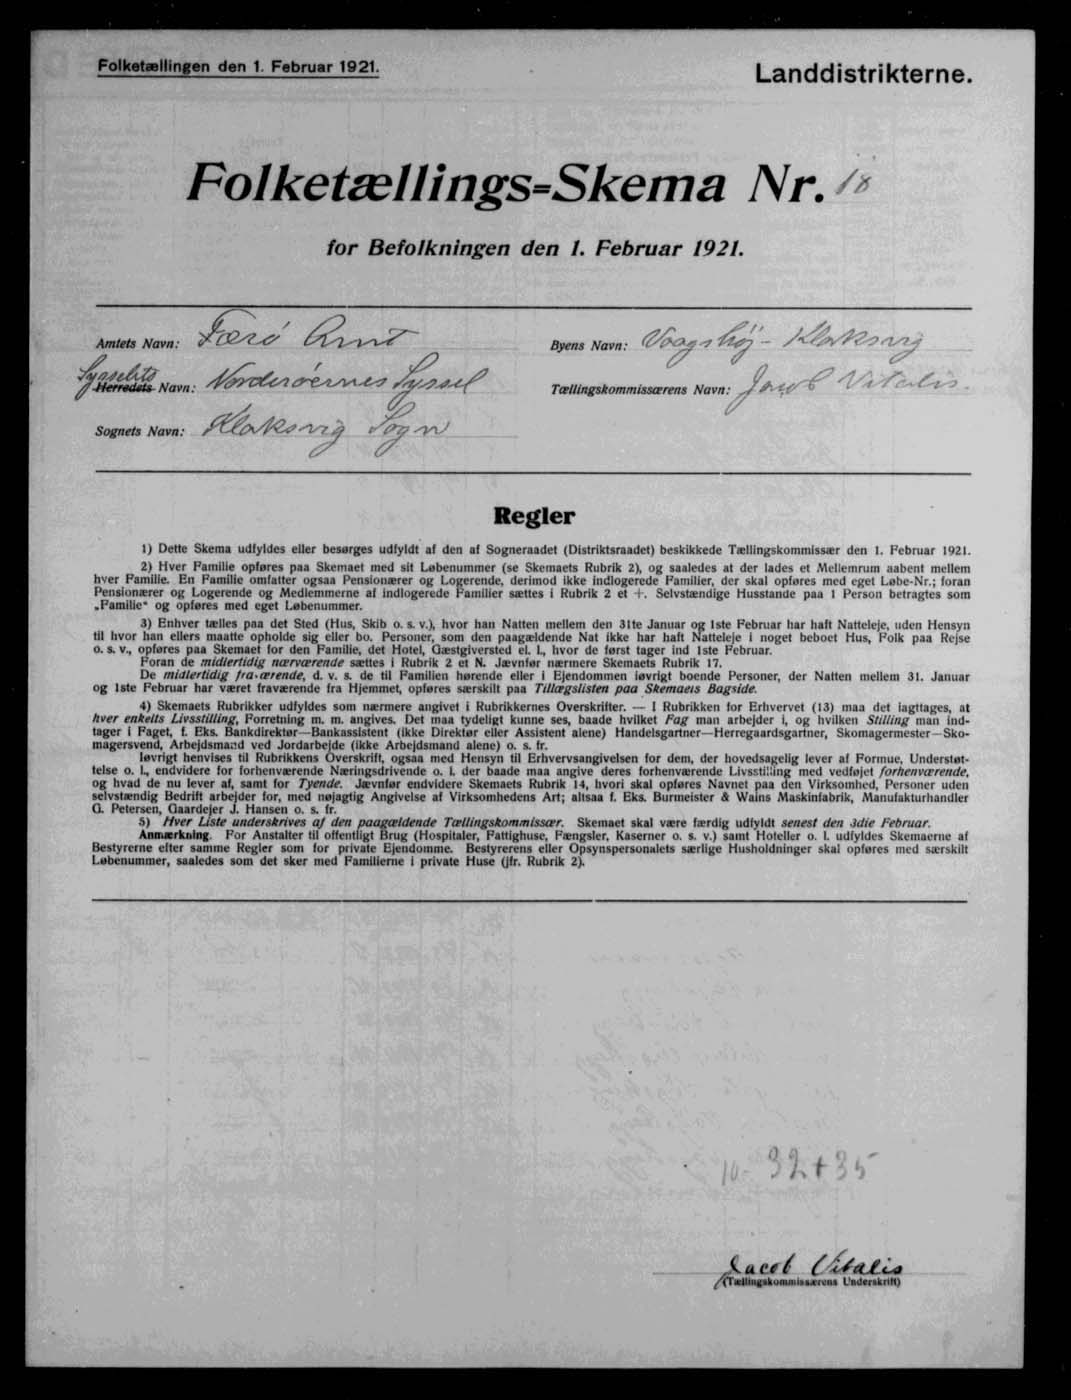 Folketællingen den 1. Februar 1921.
Landdistrikterne.
Folketællings=Skema Nr. 18
for Befolkningen den 1. Februar 1921.
Amtets Navn: Færø Amt
Byens Navn: Vaagshöj - Klaksvig
Sysselets
Herredets Navn: Norderöernes Syssel
Tællingskommissærens Navn: Jacob Vitalis.
Sognets Navn: Klaksvig Sogn
Regler
1) Dette Skema udfyldes eller besørges udfyldt af den af Sogneraadet (Distriktsraadet) beskikkede Tællingskommissær den 1. Februar 1921.
2) Hver Familie opføres paa Skemaet med sit Løbenummer (se Skemaets Rubrik 2), og saaledes at der lades et Mellemrum aabent mellem
hver Familie. En Familie omfatter ogsaa Pensionærer og Logerende, derimod ikke indlogerede Familier, der skal opføres med eget Løbe-Nr.; foran
Pensionærer og Logerende og Medlemmerne af indlogerede Familier sættes i Rubrik 2 et +. Selvstændige Husstande paa 1 Person betragtes som
„Familie“ og opføres med eget Løbenummer.
3) Enhver tælles paa det Sted (Hus, Skib o. s. v.), hvor han Natten mellem den 31te Januar og 1ste Februar har haft Natteleje, uden Hensyn
til hvor han ellers maatte opholde sig eller bo. Personer, som den paagældende Nat ikke har haft Natteleje i noget beboet Hus, Folk paa Rejse
o. s. v., opføres paa Skemaet for den Familie, det Hotel, Gæstgiversted el. l., hvor de først tager ind 1ste Februar.
Foran de midlertidig nærværende sættes i Rubrik 2 et N. Jævnfør nærmere Skemaets Rubrik 17.
De midlertidig fraværende, d. v. s. de til Familien hørende eller i Ejendommen iøvrigt boende Personer, der Natten mellem 31. Januar
og 1ste Februar har været fraværende fra Hjemmet, opføres særskilt paa Tillægslisten paa Skemaets Bagside.
4) Skemaets Rubrikker udfyldes som nærmere angivet i Rubrikkernes Overskrifter. — I Rubrikken for Erhvervet (13) maa det iagttages, at
hver enkelts Livsstilling, Forretning m. m. angives. Det maa tydeligt kunne ses, baade hvilket Fag man arbejder i, og hvilken Stilling man ind-
tager i Faget, f. Eks. Bankdirektør—Bankassistent (ikke Direktør eller Assistent alene) Handelsgartner—Herregaardsgartner, Skomagermester—Sko-
magersvend, Arbejdsmand ved Jordarbejde (ikke Arbejdsmand alene) o. s. fr.
Iøvrigt henvises til Rubrikkens Overskrift, ogsaa med Hensyn til Erhvervsangivelsen for dem, der hovedsagelig lever af Formue, Understøt-
telse o. l., endvidere for forhenværende Næringsdrivende o. l. der baade maa angive deres forhenværende Livsstilling med vedføjet forhenværende,
og hvad de nu lever af, samt for Tyende. Jævnfør endvidere Skemaets Rubrik 14, hvori skal opføres Navnet paa den Virksomhed, Personer uden
selvstændig Bedrift arbejder for, med nøjagtig Angivelse af Virksomhedens Art; altsaa f. Eks. Burmeister & Wains Maskinfabrik, Manufakturhandler
G. Petersen, Gaardejer J. Hansen o. s. fr.
5) Hver Liste underskrives af den paagældende Tællingskommissær. Skemaet skal være færdig udfyldt senest den 3die Februar.
Anmærkning. For Anstalter til offentligt Brug (Hospitaler, Fattighuse, Fængsler, Kaserner o. s. v.) samt Hoteller o. l. udfyldes Skemaerne af
Bestyrerne efter samme Regler som for private Ejendomme. Bestyrerens eller Opsynspersonalets særlige Husholdninger skal opføres med særskilt
Løbenummer, saaledes som det sker med Familierne i private Huse (jfr. Rubrik 2).
10- 32+35
Jacob Vitalis
(Tællingskommissærens Underskrift)